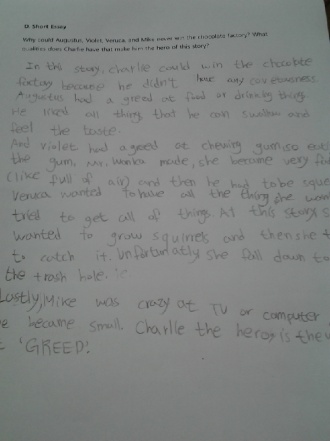 D. Short Essay
Why could Augustus, Violet, Veruca, and Mike never win the chocolate factory? What
qualities does Charlie have that make him the hero of this story?
In this story, Charlie could win the chocolate
factory because he didn't have any covetousness
Augustus had a greed at food or drinking thing.
He liked all thing that he can swallow and
feel the taste.
And Violet had a greed at chewing gum, so eat
the gum, Mr. Wonka made, she became very fa
(like full of air) and then he had to be sque
Veruka wanted to have all the thing she wan
tried to get all of thing. At this story, s
wanted to grow squirrels and then she t
to catch it. Unfortunatly she fall down to
the trash hole.
Lastly, Mike was crazy at TV or computer
e became small. Charlie the hero is the
t 'GREED!